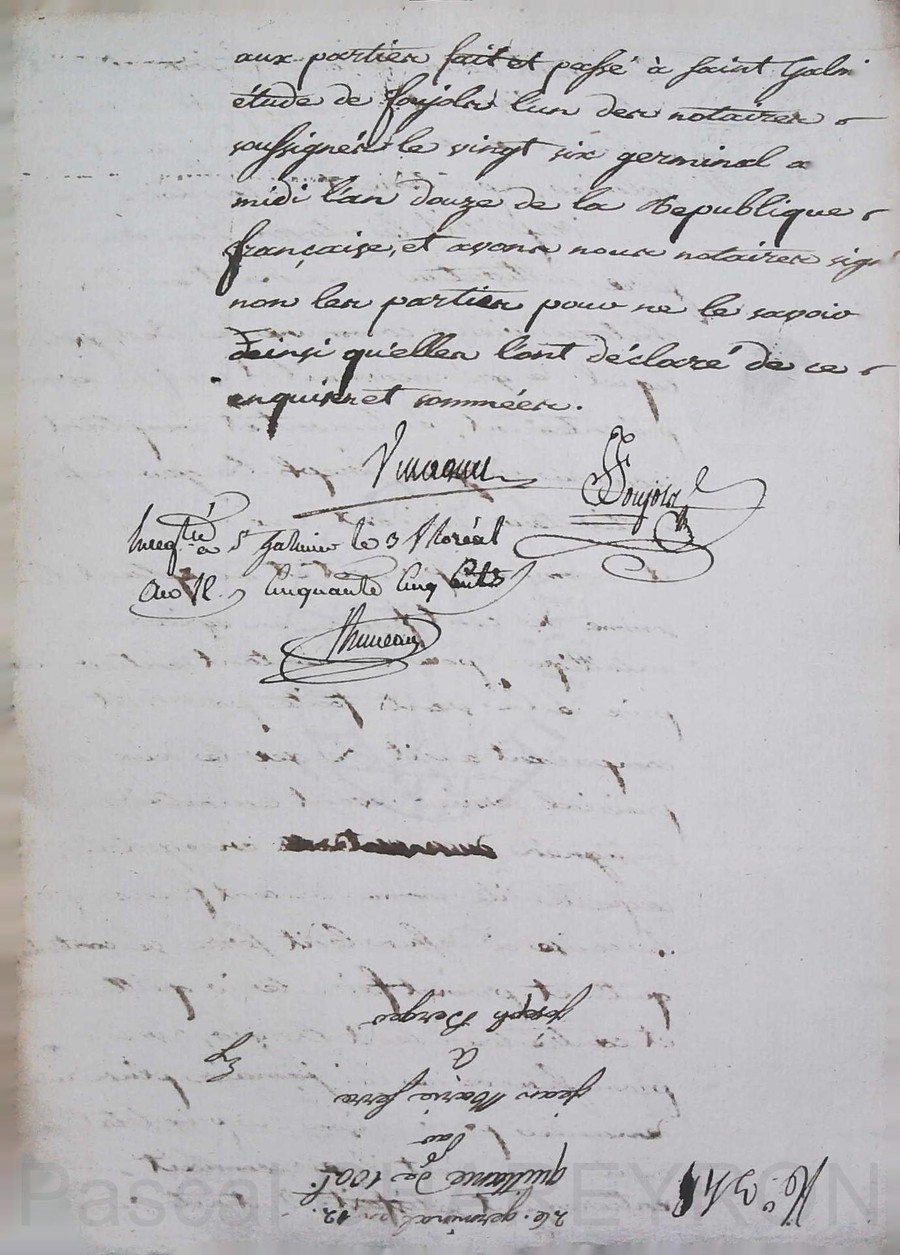 aux parties fait et passé à saint Galm
étude de foujols l'un des notaires
soussignés le vingt six germinal a
midi l'an douze de la Republique
française, et avons nous notaires sig
non les parties pour ne le savoir
ainsi qu'elles l'ont déclaré de ce
enquis et sommées.
foujols
à St Galmier le 3 floréal
an 12. Cinquante Cinq
26. germinal an 12.
quittance de 100f.
par
jean Marie ferre
à
joseph Berger
Pascal